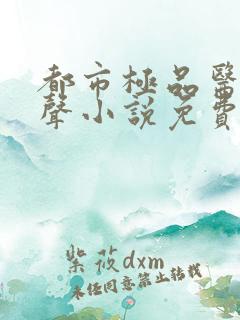 都市極品醫
聲小說免費
紫筱dxm
未经同意禁止转载